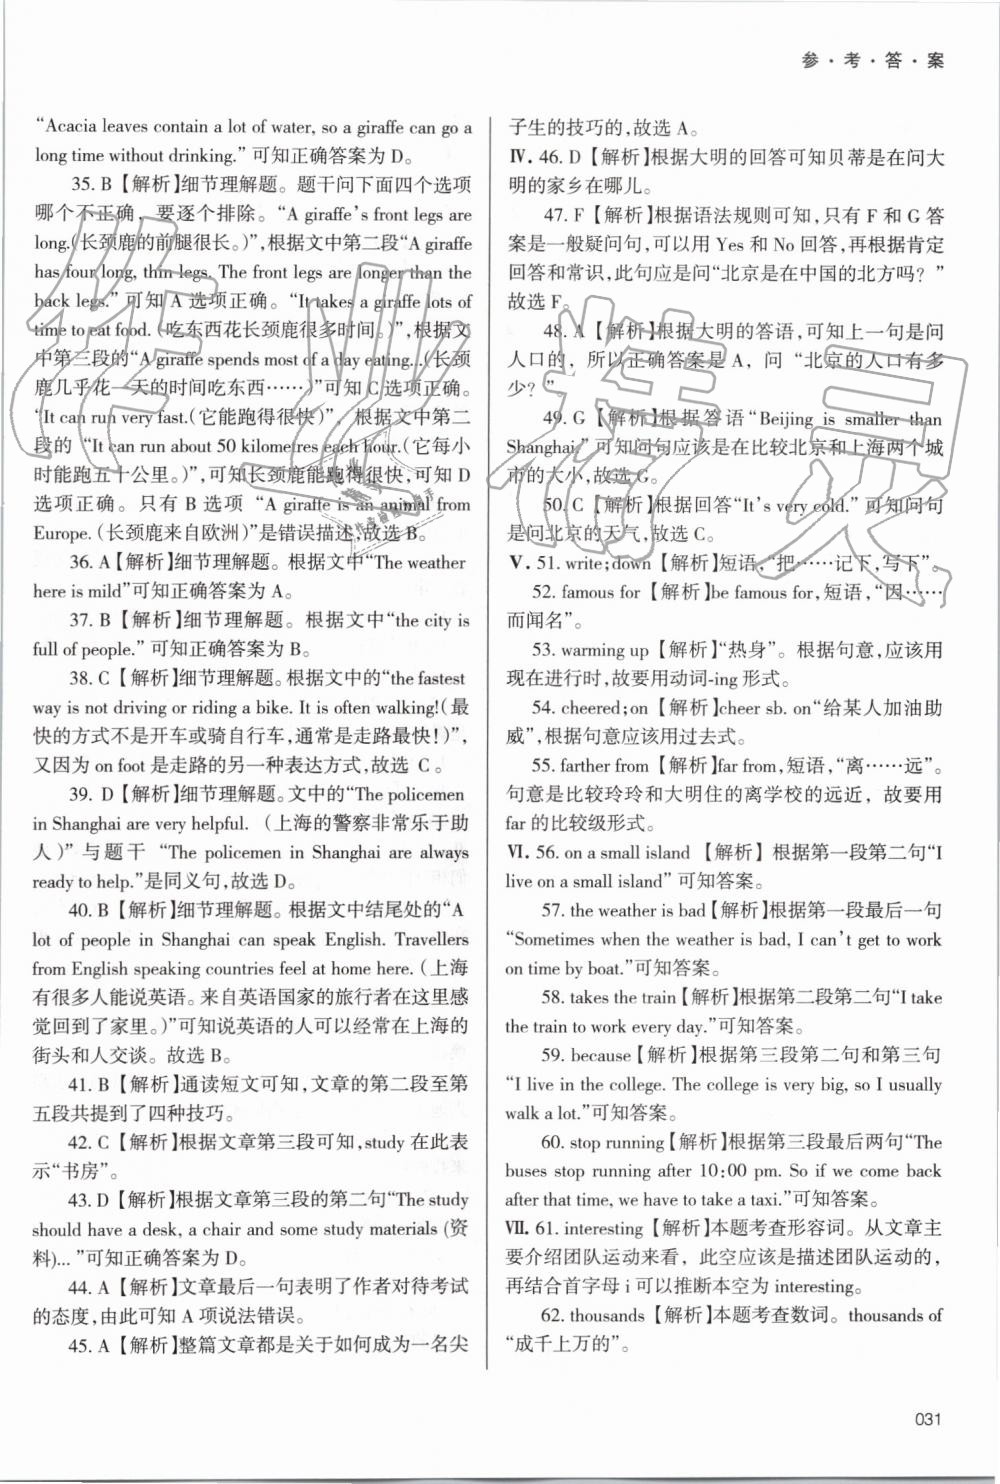 参·考·答·案
“Acacia leaves contain a lot of water, so a giraffe can go a
long time without drinking.” 可知正确答案为 D。
35. B【解析】细节理解题。题干问下面四个选项
哪个不正确，要逐个排除。“A giraffe’s front legs are
long.(长颈鹿的前腿很长。)”,根据文中第二段“A giraffe
has four long, thin legs. The front legs are longer than the
back legs.” 可知 A 选项正确。“It takes a giraffe lots of
time to eat food. (吃东西花长颈鹿很多时间。)”,根据文
中第三段的“A giraffe spends most of a day eating...(长颈
鹿几乎花一天的时间吃东西……)”可知 C 选项正确。
“It can run very fast.(它能跑得很快)”，根据文中第二
段的 “It can run about 50 kilometres each hour.(它每小
时能跑五十公里。)”,可知长颈鹿能跑得很快,可知 D
选项正确。只有 B 选项 “A giraffe is an animal from
Europe. (长颈鹿来自欧洲)”是错误描述,故选 B。
36. A【解析】细节理解题。根据文中“The weather
here is mild”可知正确答案为 A。
37. B【解析】细节理解题。根据文中“the city is
full of people.” 可知正确答案为 B。
38. C【解析】细节理解题。根据文中的“the fastest
way is not driving or riding a bike. It is often walking!(最
快的方式不是开车或骑自行车,通常是走路最快！)”,
又因为 on foot 是走路的另一种表达方式,故选 C。
39. D【解析】细节理解题。文中的“The policemen
in Shanghai are very helpful. (上海的警察非常乐于助
人)” 与题干 “The policemen in Shanghai are always
ready to help.”是同义句,故选 D。
40. B【解析】细节理解题。根据文中结尾处的“A
lot of people in Shanghai can speak English. Travellers
from English speaking countries feel at home here. (上海
有很多人能说英语。来自英语国家的旅行者在这里感
觉回到了家里。)”可知说英语的人可以经常在上海的
街头和人交谈。故选 B。
41. B【解析】通读短文可知,文章的第二段至第
五段共提到了四种技巧。
42. C【解析】根据文章第三段可知,study 在此表
示“书房”。
43. D【解析】根据文章第三段的第二句“The study
should have a desk, a chair and some study materials (资
料)... ”可知正确答案为 D。
44. A【解析】文章最后一句表明了作者对待考试
的态度,由此可知 A 项说法错误。
45. A【解析】整篇文章都是关于如何成为一名尖
子生的技巧的,故选 A。
Ⅳ. 46. D【解析】根据大明的回答可知贝蒂是在问大
明的家乡在哪儿。
47. F【解析】根据语法规则可知,只有 F 和 G 答
案是一般疑问句,可以用 Yes 和 No 回答,再根据肯定
回答和常识,此句应是问“北京是在中国的北方吗？”
故选 F。
48. A【解析】根据大明的答语,可知上一句是问
人口的，所以正确答案是 A，问“北京的人口有多
少？”
49. G【解析】根据答语“Beijing is smaller than
Shanghai.”可知问句应该是在比较北京和上海两个城
市的大小,故选 G。
50. C【解析】根据回答“It’s very cold.” 可知问句
是问北京的天气,故选 C。
Ⅴ. 51. write;down【解析】短语,“把……记下,写下”。
52. famous for【解析】be famous for,短语,“因……
而闻名”。
53. warming up【解析】“热身”。根据句意,应该用
现在进行时,故要用动词-ing 形式。
54. cheered;on【解析】cheer sb. on“给某人加油助
威”,根据句意应该用过去式。
55. farther from【解析】far from,短语,“离……远”。
句意是比较玲玲和大明住的离学校的远近，故要用
far 的比较级形式。
Ⅵ. 56. on a small island【解析】根据第一段第二句“I
live on a small island” 可知答案。
57. the weather is bad【解析】根据第一段最后一句
“Sometimes when the weather is bad, I can’t get to work
on time by boat.”可知答案。
58. takes the train【解析】根据第二段第二句“I take
the train to work every day.”可知答案。
59. because【解析】根据第三段第二句和第三句
“I live in the college. The college is very big, so I usually
walk a lot.”可知答案。
60. stop running【解析】根据第三段最后两句“The
buses stop running after 10:00 pm. So if we come back
after that time, we have to take a taxi.”可知答案。
Ⅶ. 61. interesting【解析】本题考查形容词。从文章主
要介绍团队运动来看，此空应该是描述团队运动的，
再结合首字母 i 可以推断本空为 interesting。
62. thousands【解析】本题考查数词。thousands of
“成千上万的”。
031
作业精灵